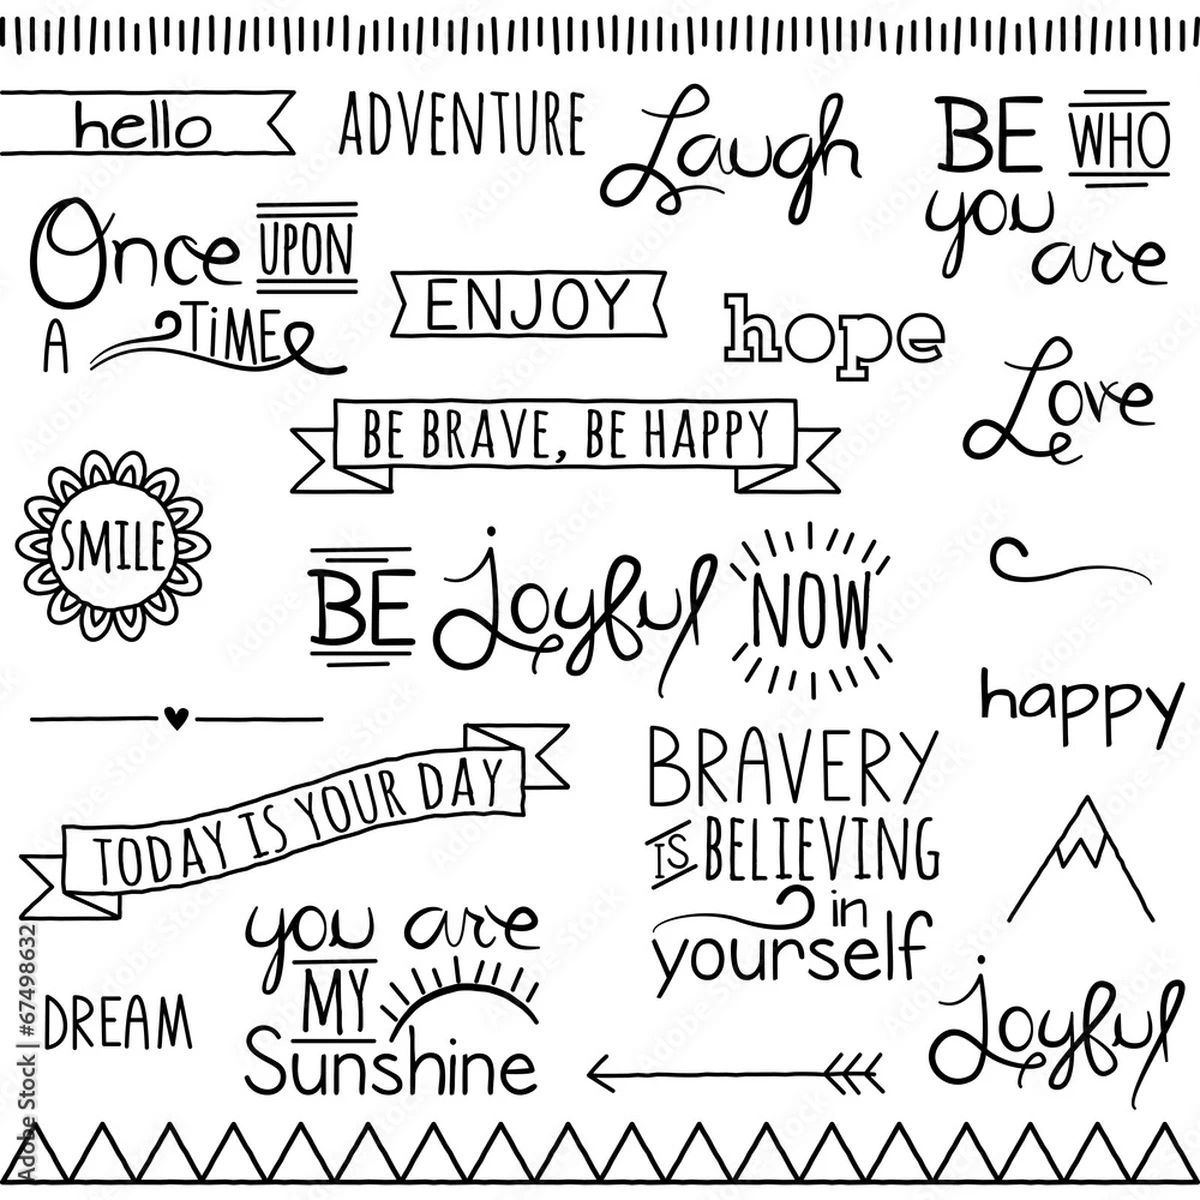 hello
ADVENTURE
Laugh
BE WHO
you
are
Once UPON
A TiME
ENJOY
hope
Love
BE BRAVE, BE HAPPY
SMILE
BE joyful NOW
happy
TODAY IS YOUR DAY
BRAVERY
IS BELIEVING
in
yourself
you are
MY
Sunshine
DREAM
joyful
Adobe Stock | #67498632